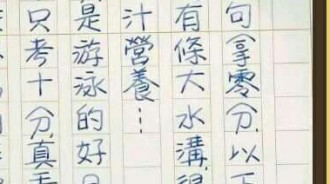 句拿零分,以下
有條大水溝,很
汁營養…
是游泳的好日
只考十分,真